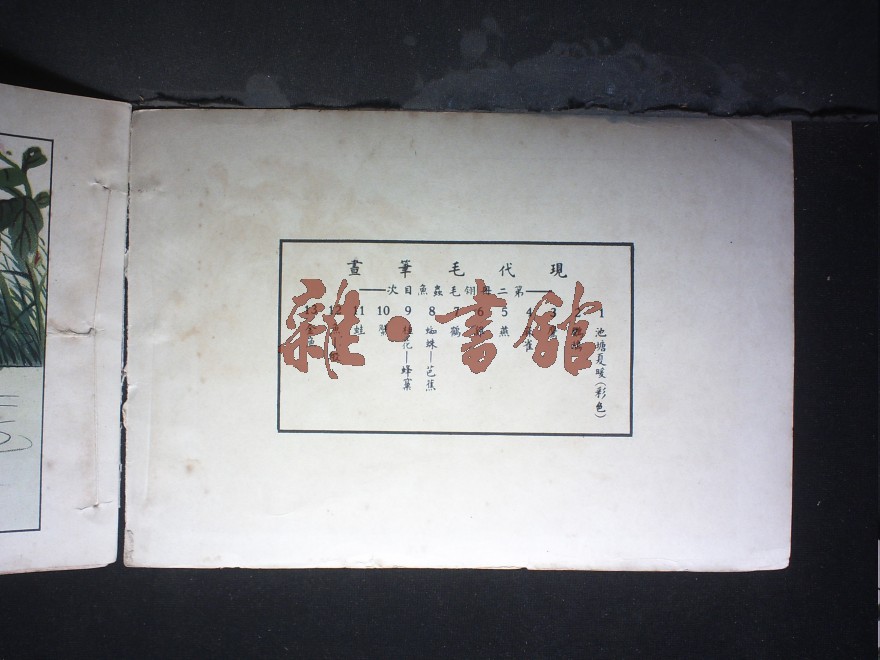 現代毛筆畫
——第二冊翎毛蟲魚目次——
1 池塘夏暖(彩色)
2
3
4 雀
5 燕
6
7 鶴
8 蜘蛛—芭蕉
9 花—蜂窠
10
11 蛙
12
13 魚
雜·書館